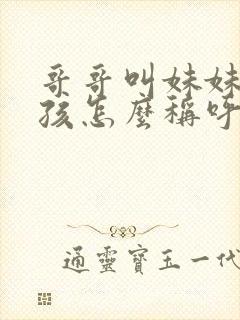 哥哥叫妹妹
孩怎麼稱呼
通靈寶玉一代